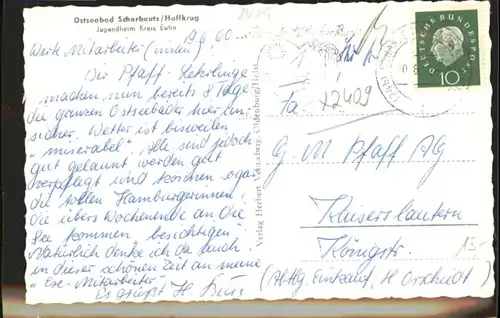 Ostseebad Scharbeutz/Haffkrug
Jugendheim Kreis Eutin
19.6.60
Werte Mitarbeiter(innen)!
Die Pfaff-Lehrlinge
machen nun bereits 8 Tage
die ganzen Ostseebäder hier un-
sicher. Wetter ist bisweilen
"miserabel". Alle sind jedoch
gut gelaunt, werden gut
verpflegt und können sogar
die tollen Hamburgerinnen,
die übers Wochenende an die
See kommen besichtigen.
Natürlich denke ich da auch
in dieser schönen Zeit an meine
"Exe-Mitarbeiter.
Es grüßt H.
Verlag Herbert Oldenburg/Holst.
DEUTSCHE BUNDESPOST
10
Fa. X2409
G. M. Pfaff AG
Kaiserslautern
Königstr.
(Abtlg. Einkauf, H.